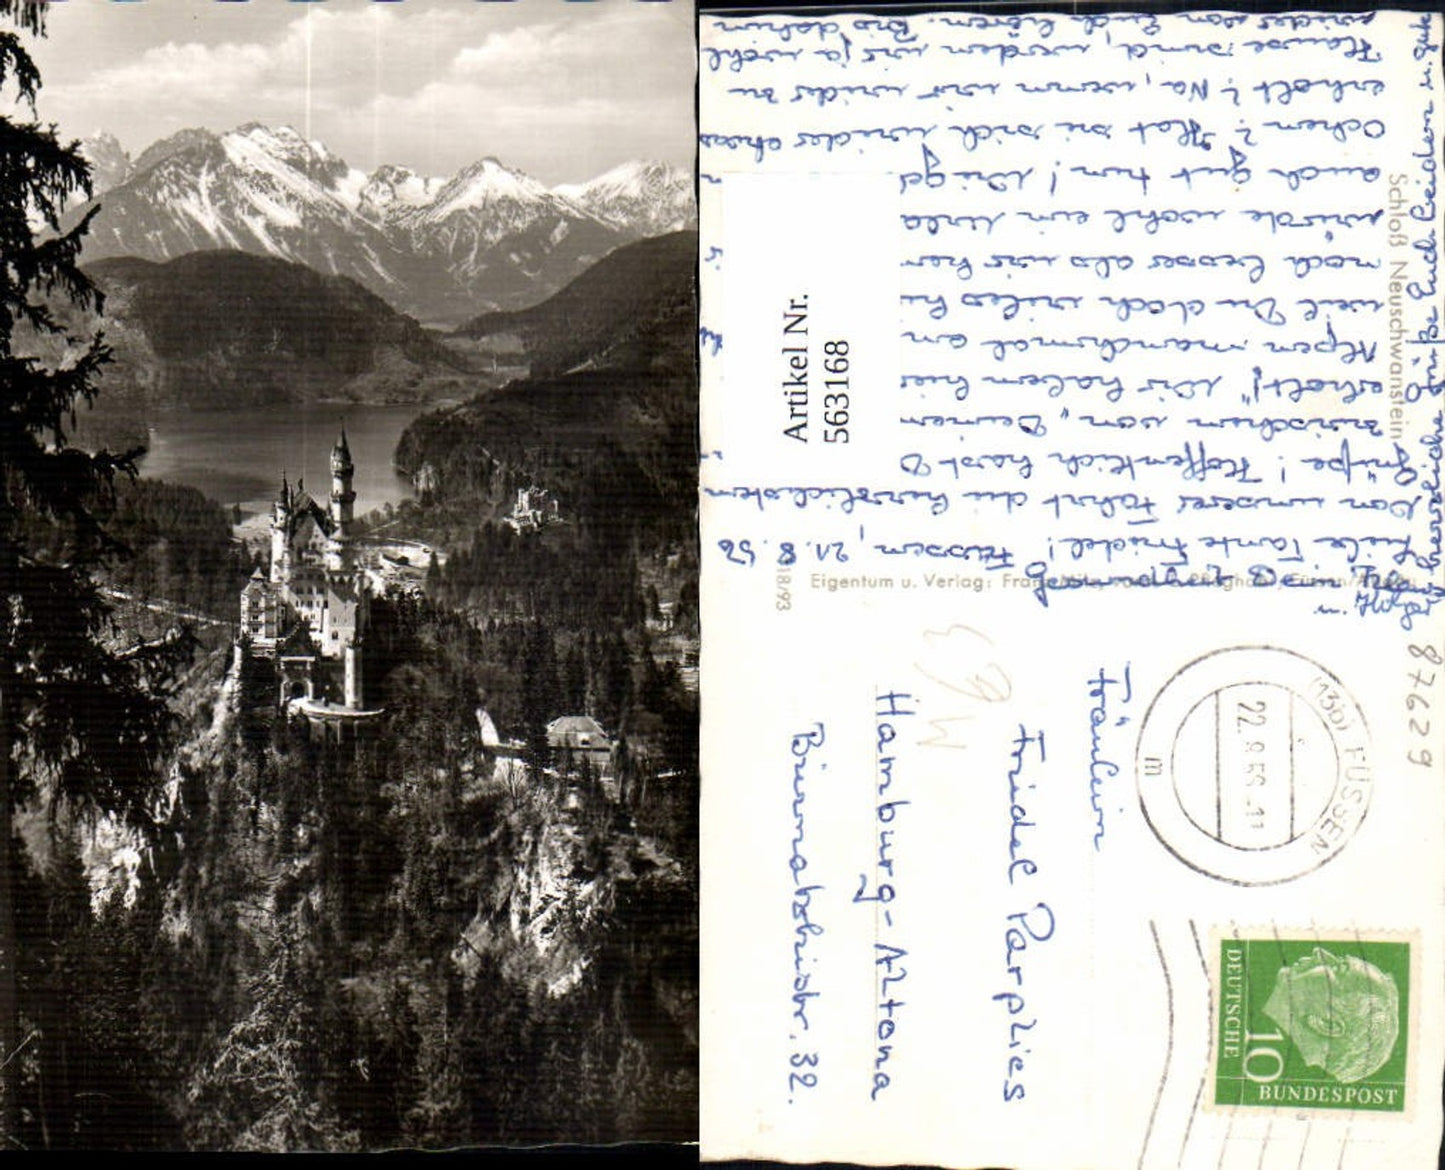 Schloß Neuschwanstein
Füssen, 21.8.56
Tante Friedel!
Von unserer Fahrt die herzlichsten
Grüße! Hoffentlich hast D
inzwischen von „Deinen
erholt!" Wir haben hier
Alpen manchmal an
weil Du doch vieles
noch besser als wir
würde wohl ein Urla
auch gut tun!
Ochsen? Hat sie sich wieder etwas
erholt? Na, wenn wir wieder zu
Hause sind, werden wir ja wohl
wieder von Euch hören. Bis dahin
herzliche Grüße Euch beiden
Artikel Nr.
563168
18/93
Eigentum u. Verlag:
87629
Fräulein
Friedel Parplies
Hamburg-Altona
32.
(13b) FÜSSEN
22.8.56-11
m
DEUTSCHE
10
BUNDESPOST